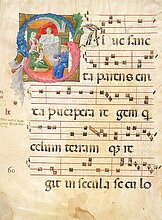 Alue sanc
ta parens eni
xa puerpera re gem q
celum terram q re
git in secula se cu lo